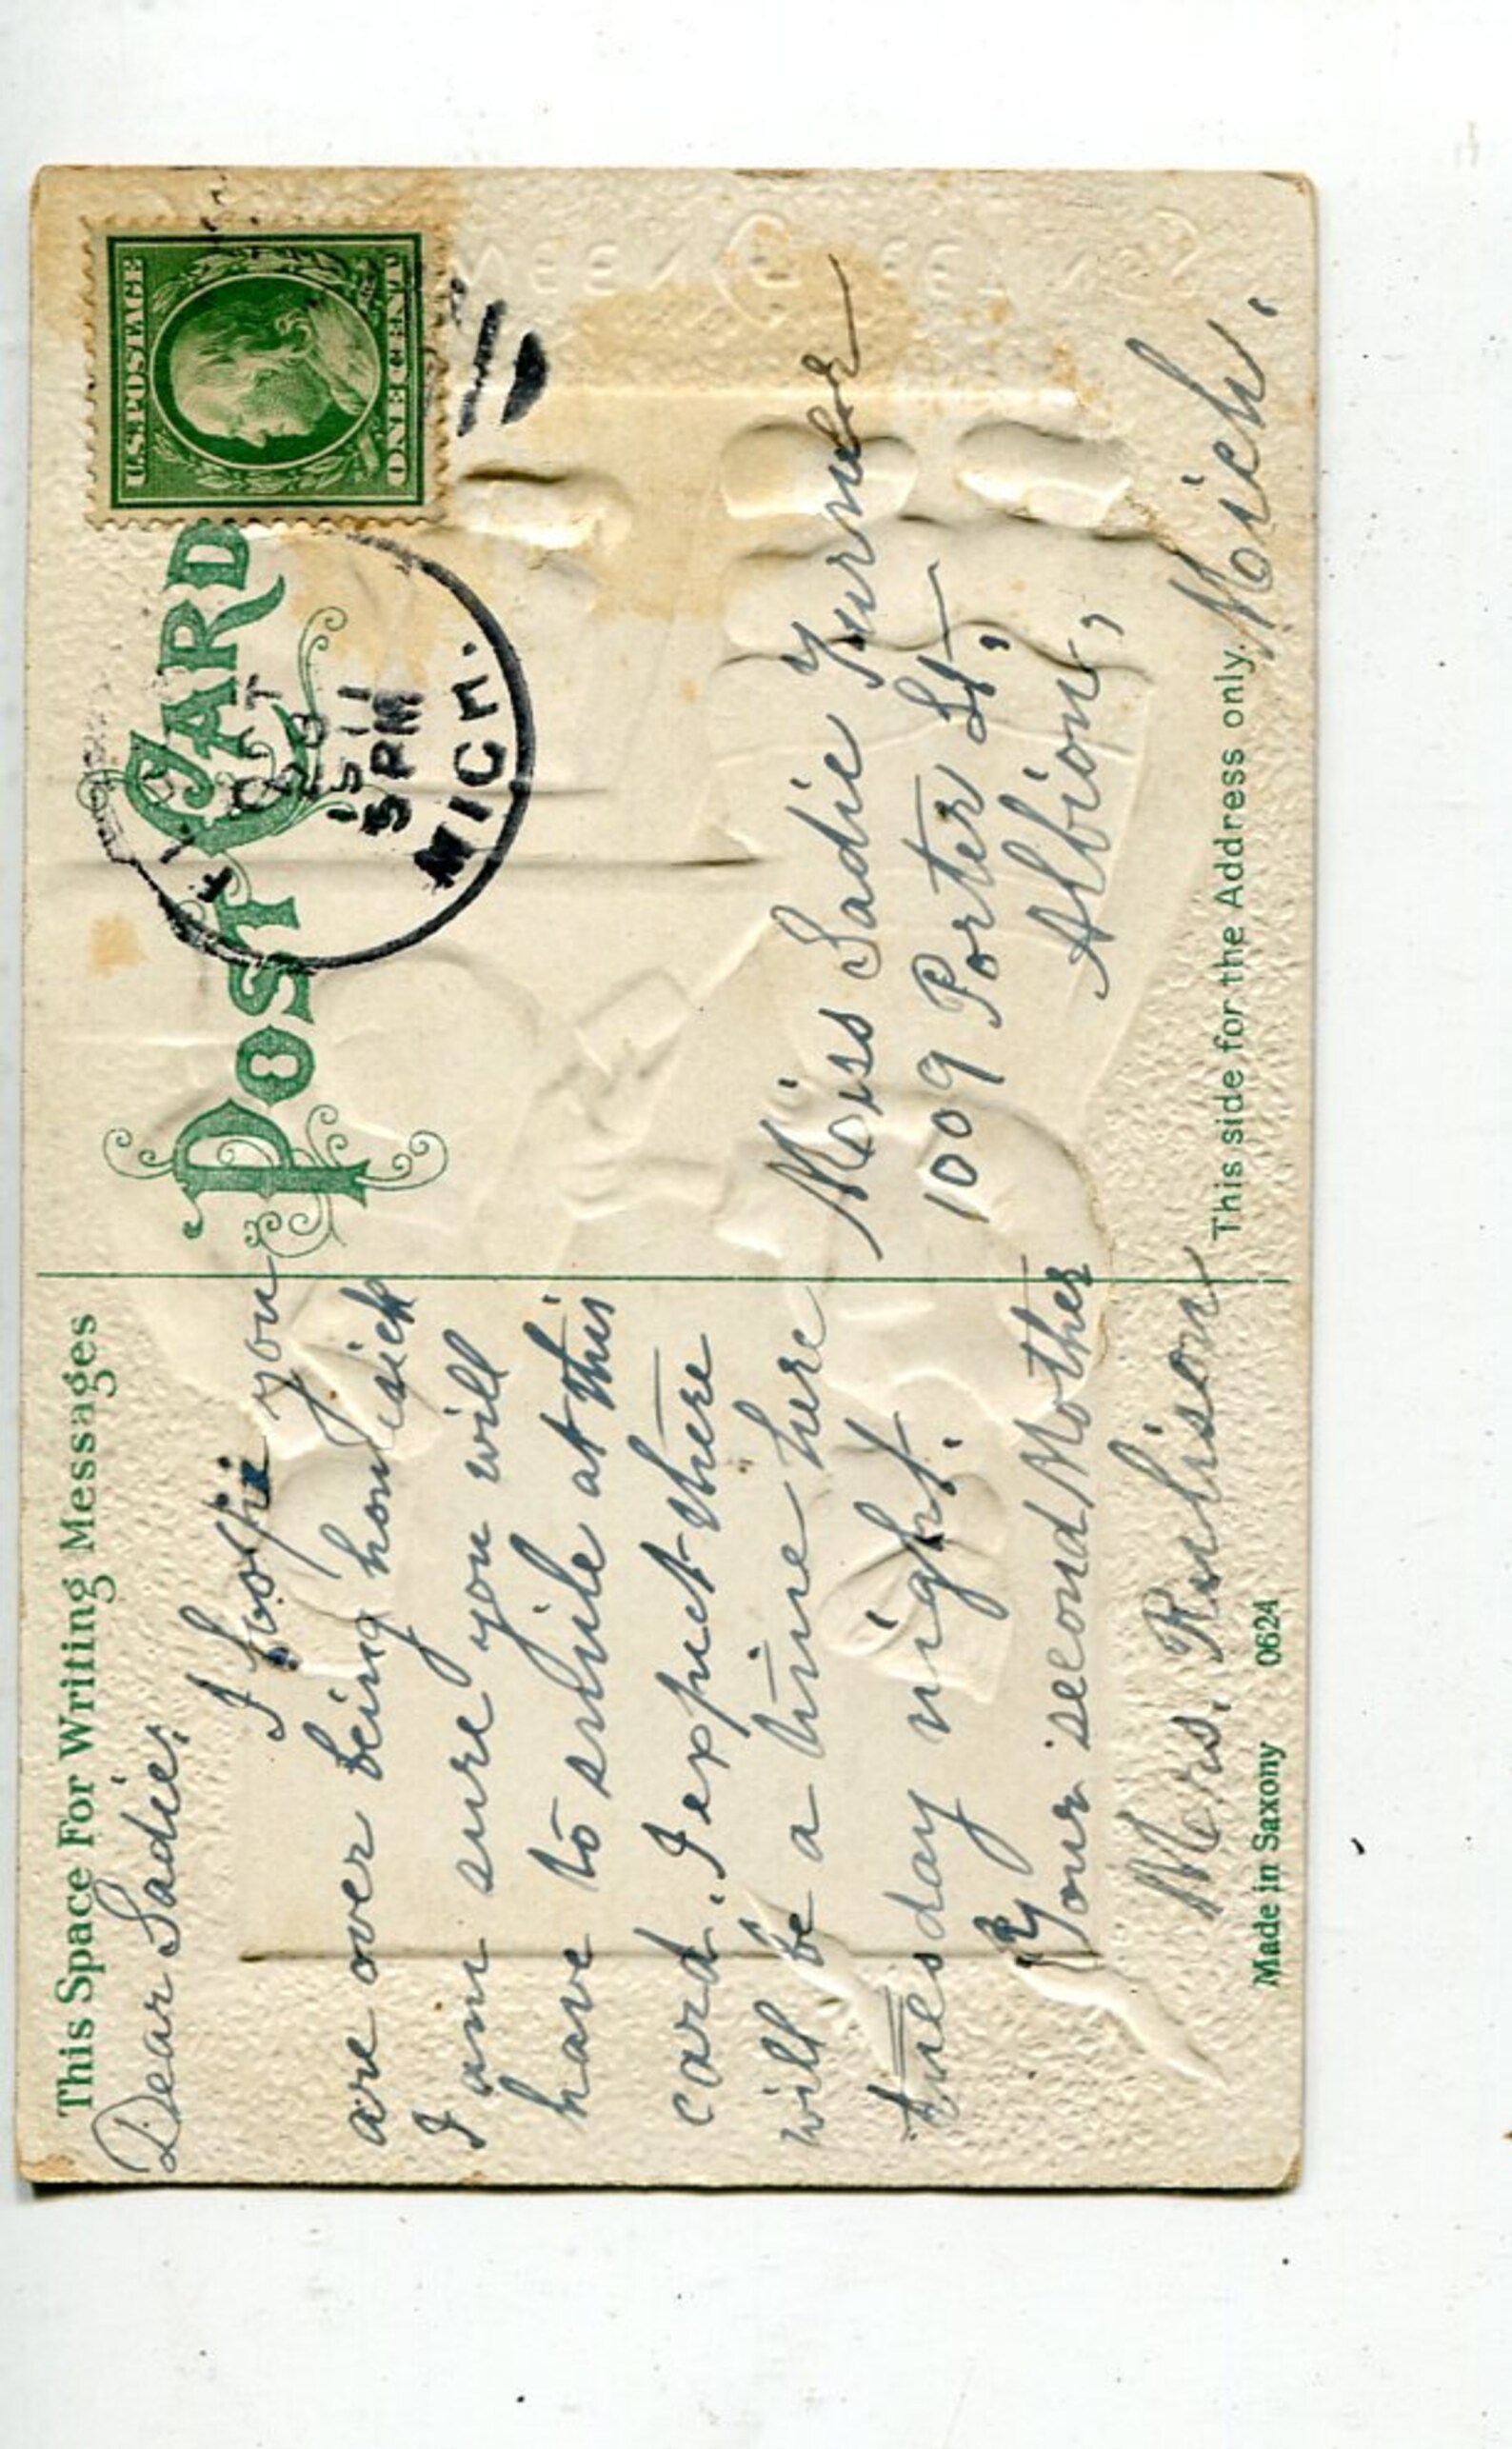 This Space For Writing Messages
Dear Sadie;
I hope you
are over being homesick
I am sure you will
have to smile at this
card. I expect there
will be a time here
tuesday night.
Your second Mother
Mrs. Rulison
Made in Saxony 0624
POST CARD
U.S.POSTAGE
ONE CENT
OCT
28
1911
5 PM
MICH.
Miss Sadie Turner
1009 Porter St,
Albion,
Mich.
This side for the Address only.